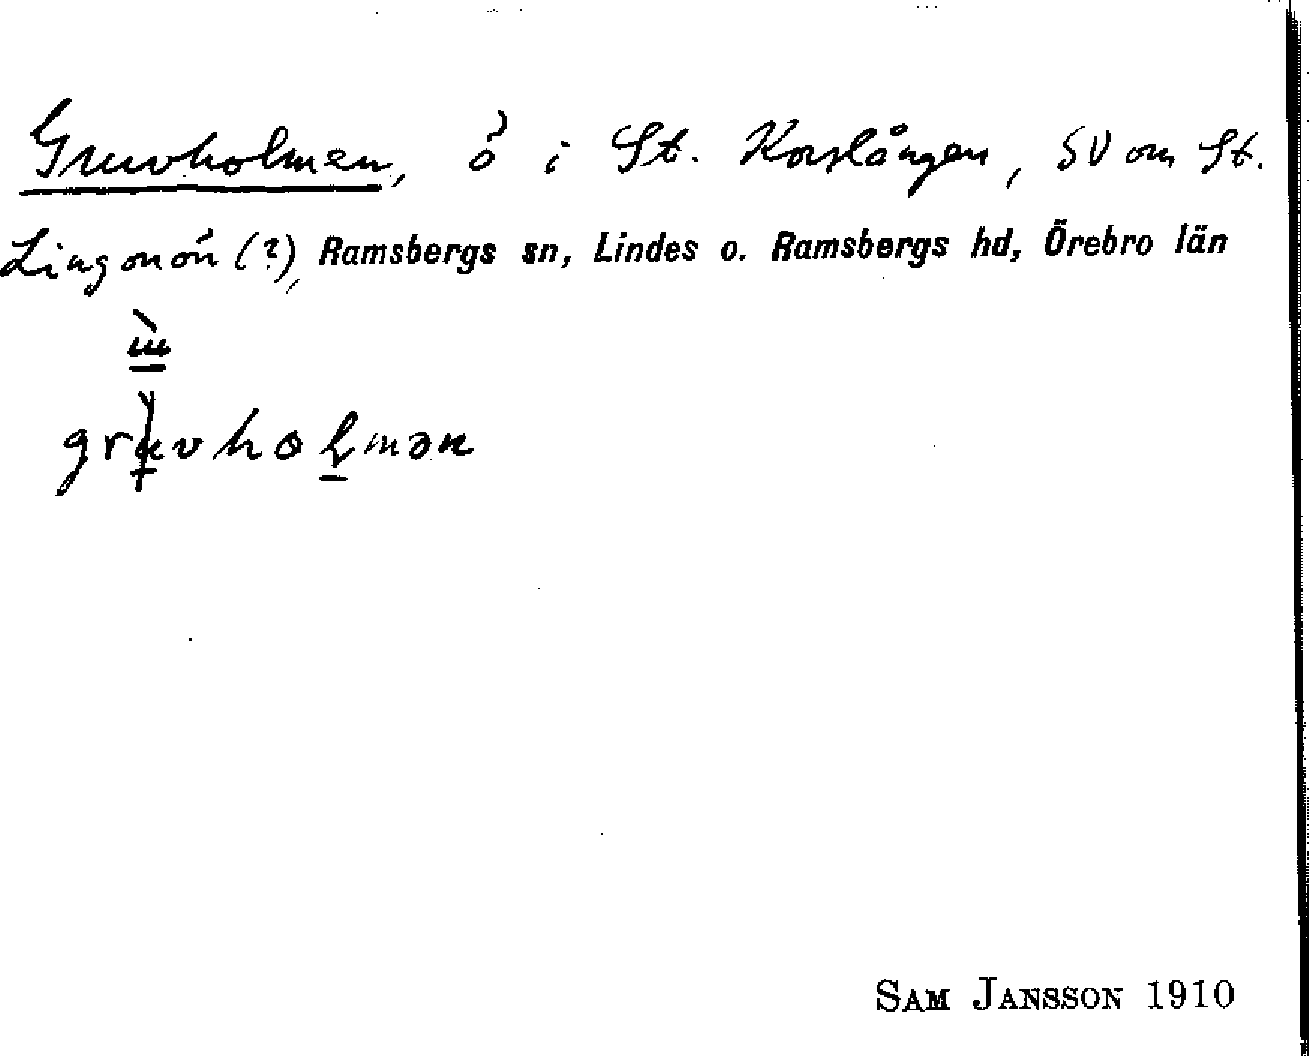 Gruvholmen, ö i St. Korslången, SV om St.
Lingonön (?), Ramsbergs sn, Lindes o. Ramsbergs hd, Örebro län
gruvholmən
SAM JANSSON 1910